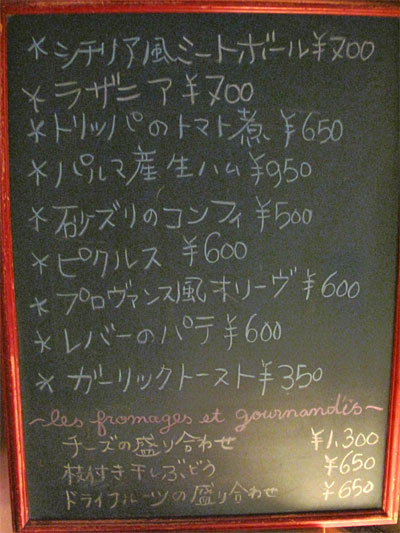 * シチリア風ミートボール ¥700
* ラザニア ¥700
* トリッパのトマト煮 ¥650
* パルマ産生ハム ¥950
* 砂ズリのコンフィ ¥500
* ピクルス ¥600
* プロヴァンス風オリーヴ ¥600
* レバーのパテ ¥600
* ガーリックトースト ¥350
~les fromages et gournandis~
チーズの盛り合わせ ¥1,300
枝付き干しぶどう ¥650
ドライフルーツの盛り合わせ ¥650